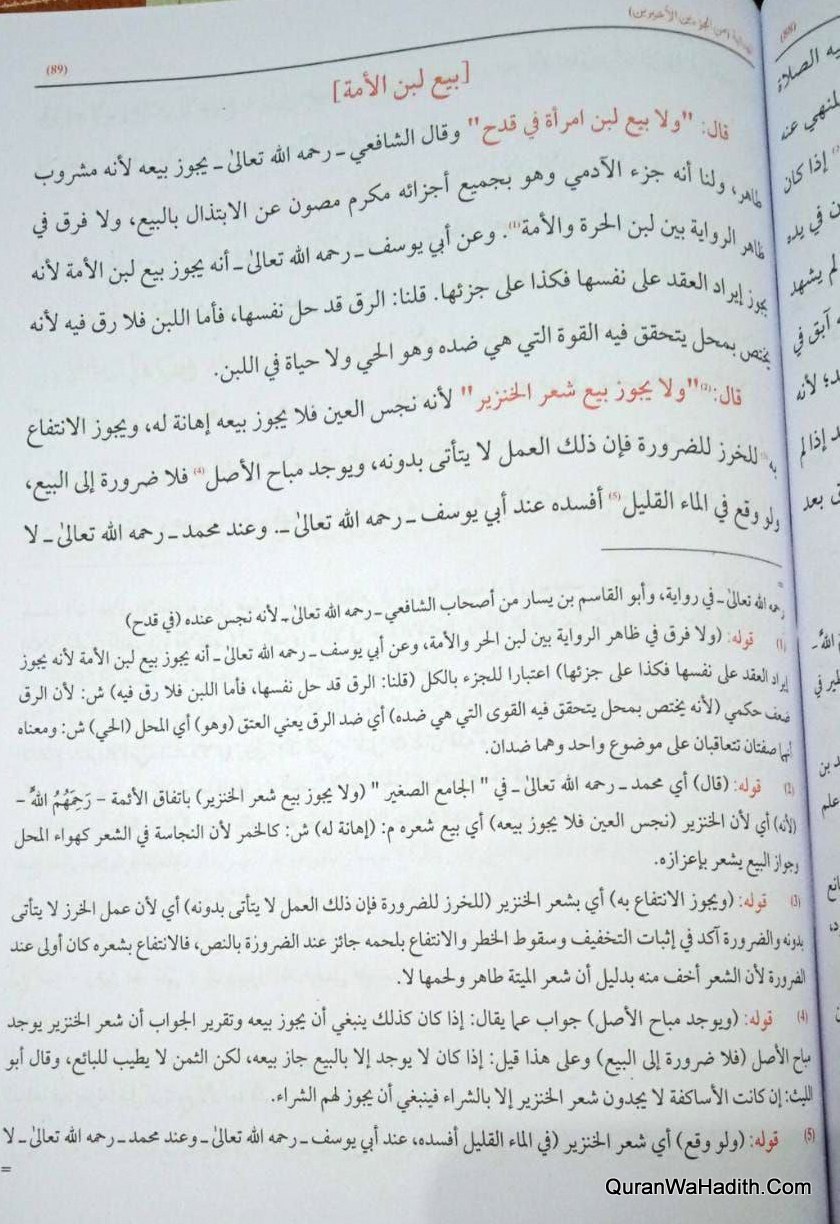 (89)
(من الجزءين الأخيرين)
[بيع لبن الأمة]
قال: "ولا بيع لبن امرأة في قدح" وقال الشافعي ـ رحمه الله تعالىٰ ـ يجوز بيعه لأنه مشروب
طاهر، ولنا أنه جزء الآدمي وهو بجميع أجزائه مكرم مصون عن الابتذال بالبيع، ولا فرق في
ظاهر الرواية بين لبن الحرة والأمة(1). وعن أبي يوسف ـ رحمه الله تعالىٰ ـ أنه يجوز بيع لبن الأمة لأنه
يجوز إيراد العقد على نفسها فكذا على جزئها. قلنا: الرق قد حل نفسها، فأما اللبن فلا رق فيه لأنه
يختص بمحل يتحقق فيه القوة التي هي ضده وهو الحي ولا حياة في اللبن.
قال:(2) "ولا يجوز بيع شعر الخنزير" لأنه نجس العين فلا يجوز بيعه إهانة له، ويجوز الانتفاع
به للخرز للضرورة فإن ذلك العمل لا يتأتى بدونه، ويوجد مباح الأصل(4) فلا ضرورة إلى البيع،
ولو وقع في الماء القليل(5) أفسده عند أبي يوسف ـ رحمه الله تعالىٰ ـ. وعند محمد ـ رحمه الله تعالىٰ ـ لا
رحمه الله تعالىٰ ـ في رواية، وأبو القاسم بن يسار من أصحاب الشافعي ـ رحمه الله تعالىٰ ـ لأنه نجس عنده (في قدح)
(1) قوله: (ولا فرق في ظاهر الرواية بين لبن الحر والأمة، وعن أبي يوسف ـ رحمه الله تعالىٰ ـ أنه يجوز بيع لبن الأمة لأنه يجوز
إيراد العقد على نفسها فكذا على جزئها) اعتبارا للجزء بالكل (قلنا: الرق قد حل نفسها، فأما اللبن فلا رق فيه) ش: لأن الرق
ضعف حكمي (لأنه يختص بمحل يتحقق فيه القوى التي هي ضده) أي ضد الرق يعني العتق (وهو) أي المحل (الحي) ش: ومعناه
أنهما صفتان تتعاقبان على موضوع واحد وهما ضدان.
(2) قوله: (قال) أي محمد ـ رحمه الله تعالىٰ ـ في " الجامع الصغير " (ولا يجوز بيع شعر الخنزير) باتفاق الأئمة – رَحِمَهُمُ اللهُ –
(لأنه) أي لأن الخنزير (نجس العين فلا يجوز بيعه) أي بيع شعره م: (إهانة له) ش: كالخمر لأن النجاسة في الشعر كهواء المحل
وجواز البيع يشعر بإعزازه.
(3) قوله: (ويجوز الانتفاع به) أي بشعر الخنزير (للخرز للضرورة فإن ذلك العمل لا يتأتى بدونه) أي لأن عمل الخرز لا يتأتى
بدونه والضرورة آكد في إثبات التخفيف وسقوط الخطر والانتفاع بلحمه جائز عند الضرورة بالنص، فالانتفاع بشعره كان أولى عند
الضرورة لأن الشعر أخف منه بدليل أن شعر الميتة طاهر ولحمها لا.
(4) قوله: (ويوجد مباح الأصل) جواب عما يقال: إذا كان كذلك ينبغي أن يجوز بيعه وتقرير الجواب أن شعر الخنزير يوجد
مباح الأصل (فلا ضرورة إلى البيع) وعلى هذا قيل: إذا كان لا يوجد إلا بالبيع جاز بيعه، لكن الثمن لا يطيب للبائع، وقال أبو
الليث: إن كانت الأساكفة لا يجدون شعر الخنزير إلا بالشراء فينبغي أن يجوز لهم الشراء.
(5) قوله: (ولو وقع) أي شعر الخنزير (في الماء القليل أفسده، عند أبي يوسف ـ رحمه الله تعالىٰ ـ وعند محمد ـ رحمه الله تعالىٰ ـ لا
=
(88)
يه الصلاة
المنهي عنه
إذا كان
ن في يده
لم يشهد
آبق في
د؛ لأنه
د إذا لم
ق بعد
QuranWaHadith.Com